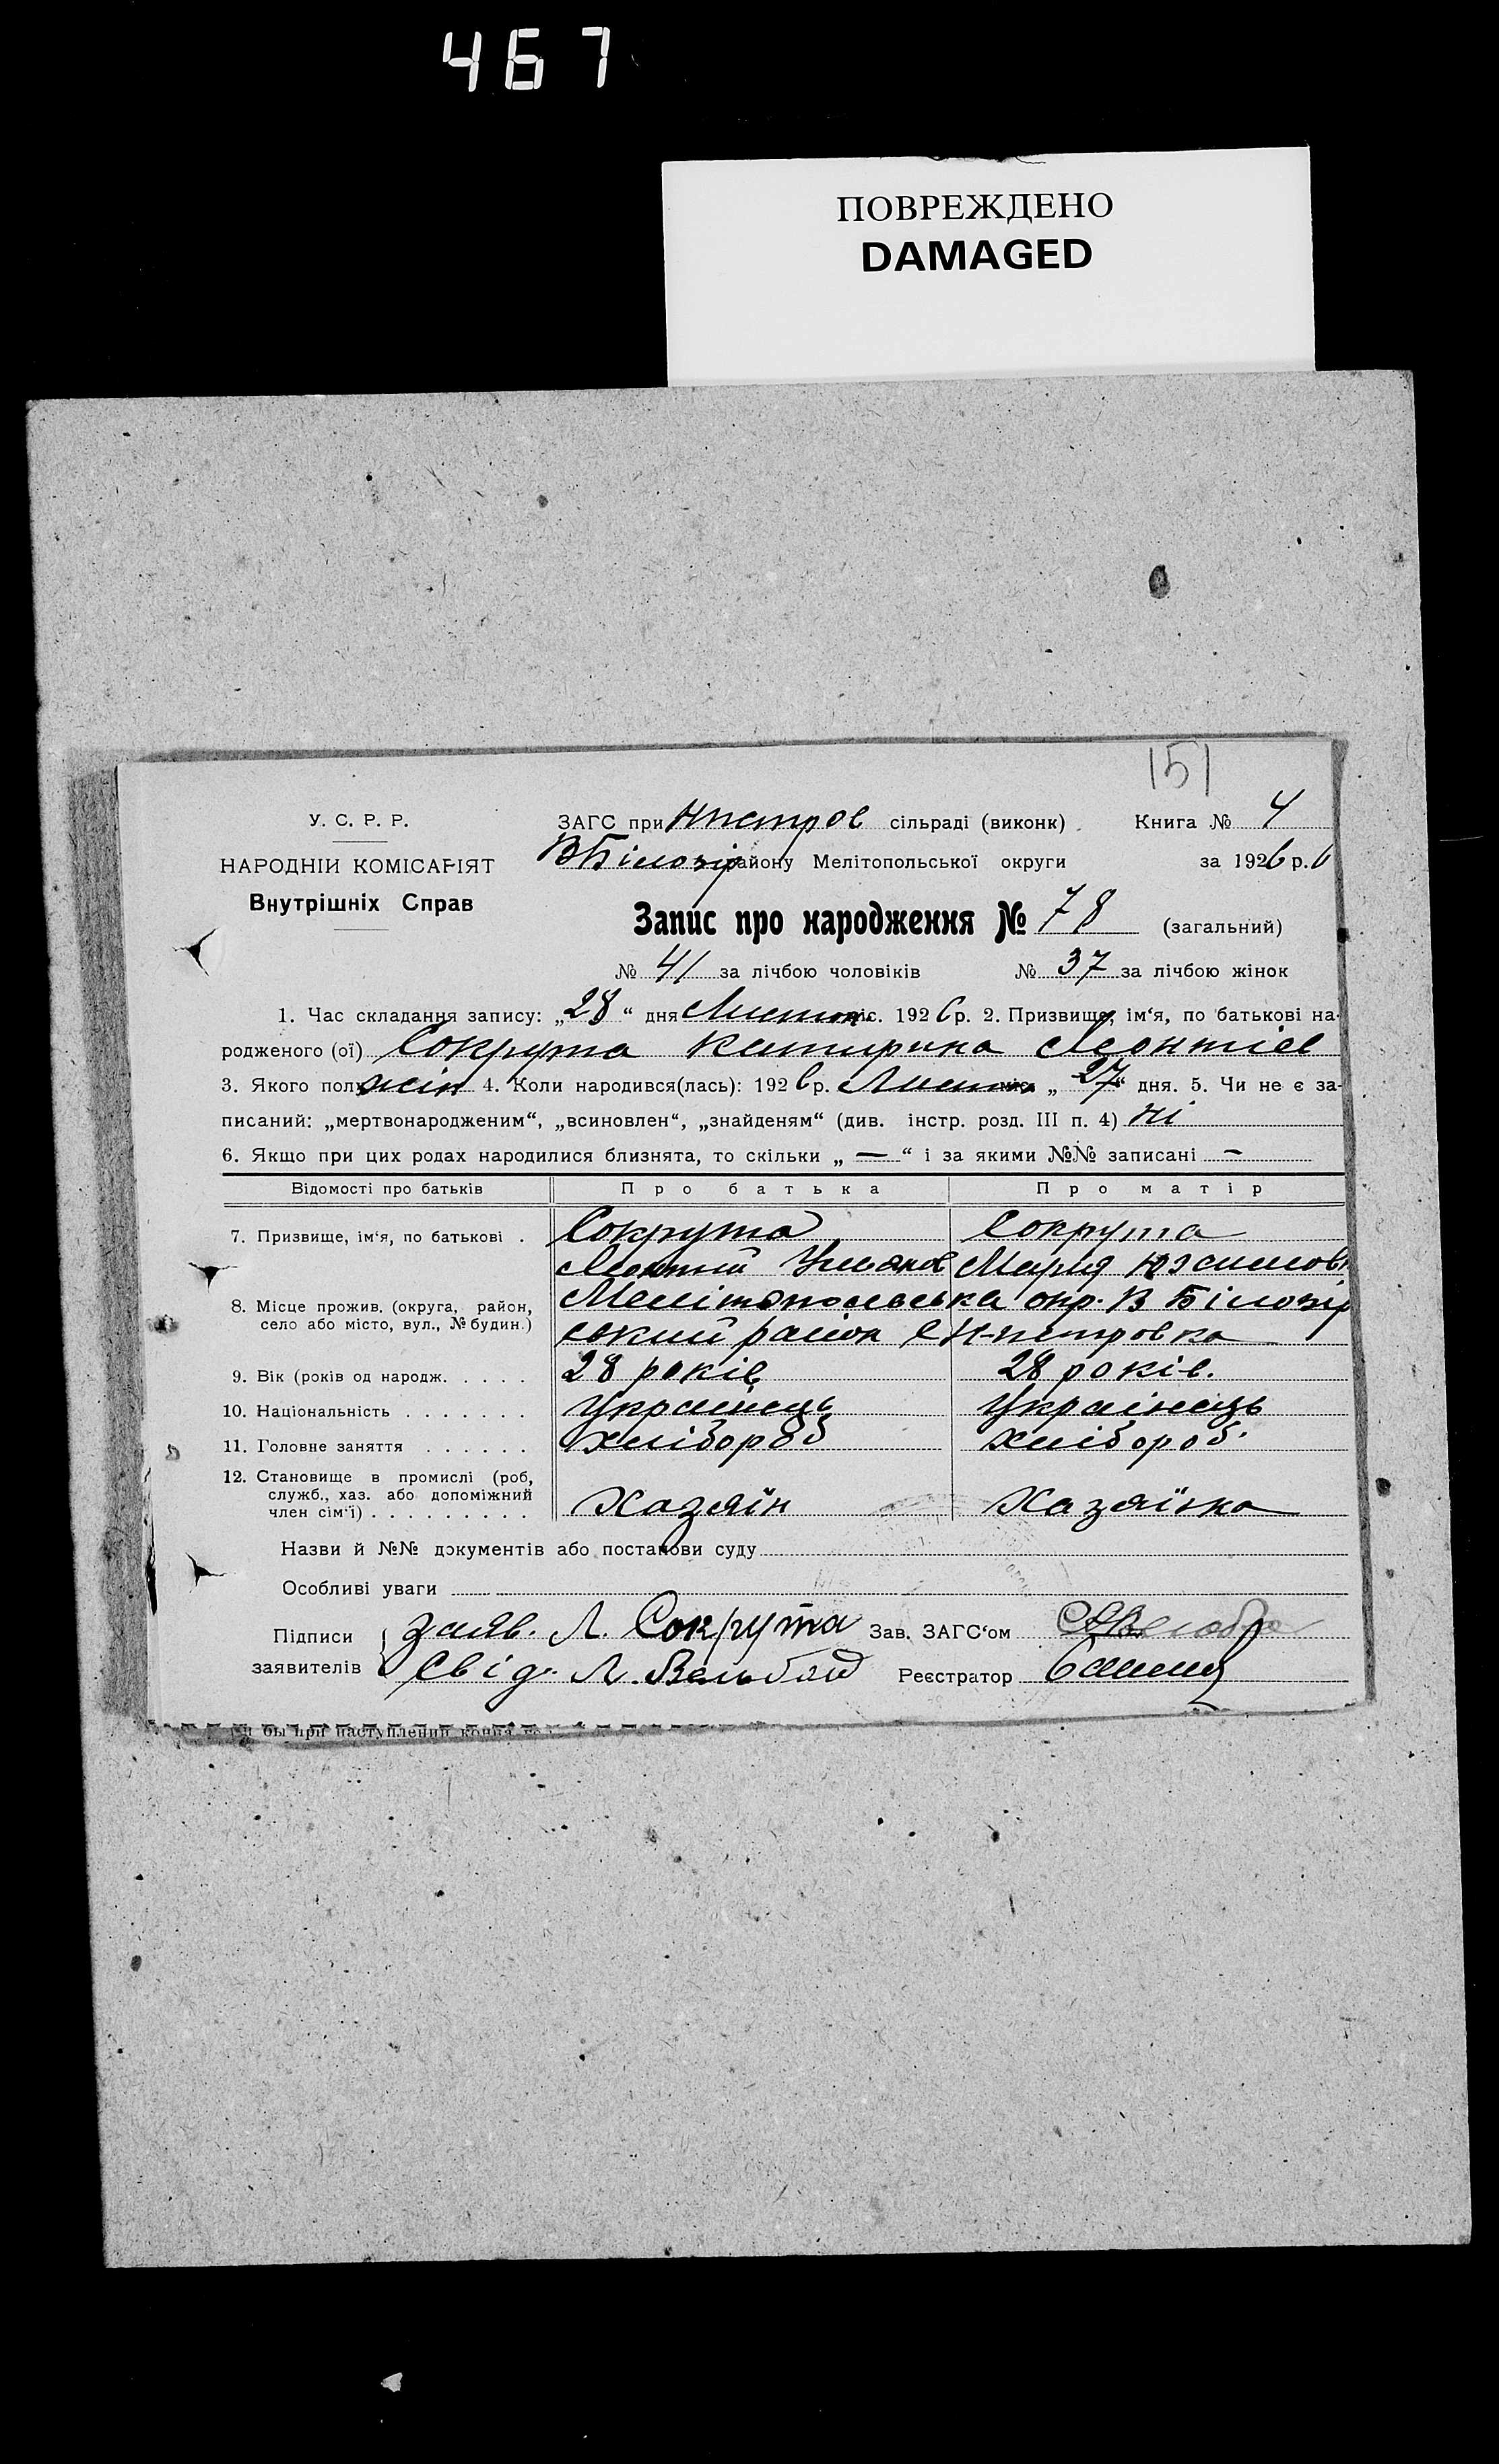 467
ПОВРЕЖДЕНО
DAMAGED
151
У. С. Р. Р.
ЗАГС при Нпетров сільраді (виконк) Книга № 4
НАРОДНІЙ КОМІСАРІЯТ
ВБілозір району Мелітопольської округи за 1926 р.
Внутрішніх Справ
Запис про народження № 78 (загальний)
№ 41 за лічбою чоловіків № 37 за лічбою жінок
1. Час складання запису: „28“ дня Листоп міс. 1926 р. 2. Призвище, ім‘я, по батькові на-
родженого (ої) Сокрута Катирина Леонтіев
3. Якого пол жін 4. Коли народився(лась): 1926 р. Листоп „27“ дня. 5. Чи не є за-
писаний: „мертвонародженим“, „всиновлен“, „знайденям“ (див. інстр. розд. III п. 4) ні
6. Якщо при цих родах народилися близнята, то скільки „ — “ і за якими №№ записані —
Відомості про батьків Про батька Про матір
7. Призвище, ім‘я, по батькові . Сокрута Сокрута
Леонтий Мария
8. Місце прожив. (округа, район, село або місто, вул., № будин.) Мелітопольська окр. В Білозір
ський район с Н-петровка
9. Вік (років од народж. . . . . 28 років 28 років.
10. Національність . . . . . . . Українець Українець
11. Головне заняття . . . . . . хлібороб хлібороб.
12. Становище в промислі (роб, служб., хаз. або допоміжний член сім‘ї) . . . . . . . . . Хазяїн Хазяїнка
Назви й №№ документів або постанови суду
Особливі уваги
Підписи заяв. Л. Сокрута Зав. ЗАГС‘ом
заявителів Свід. Л. Вельбой Реєстратор
ы бы при наступлении конца